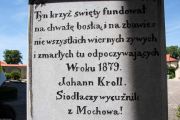 Tyn krzyż swięty fundował
na chwałę boską, i na zbawie-
nie wszystkich wiernych żywych
i zmarłych tu odpoczywających
W roku 1879.
Johann Kroll.
Siodłaczy wycużnik
z Mochowa!